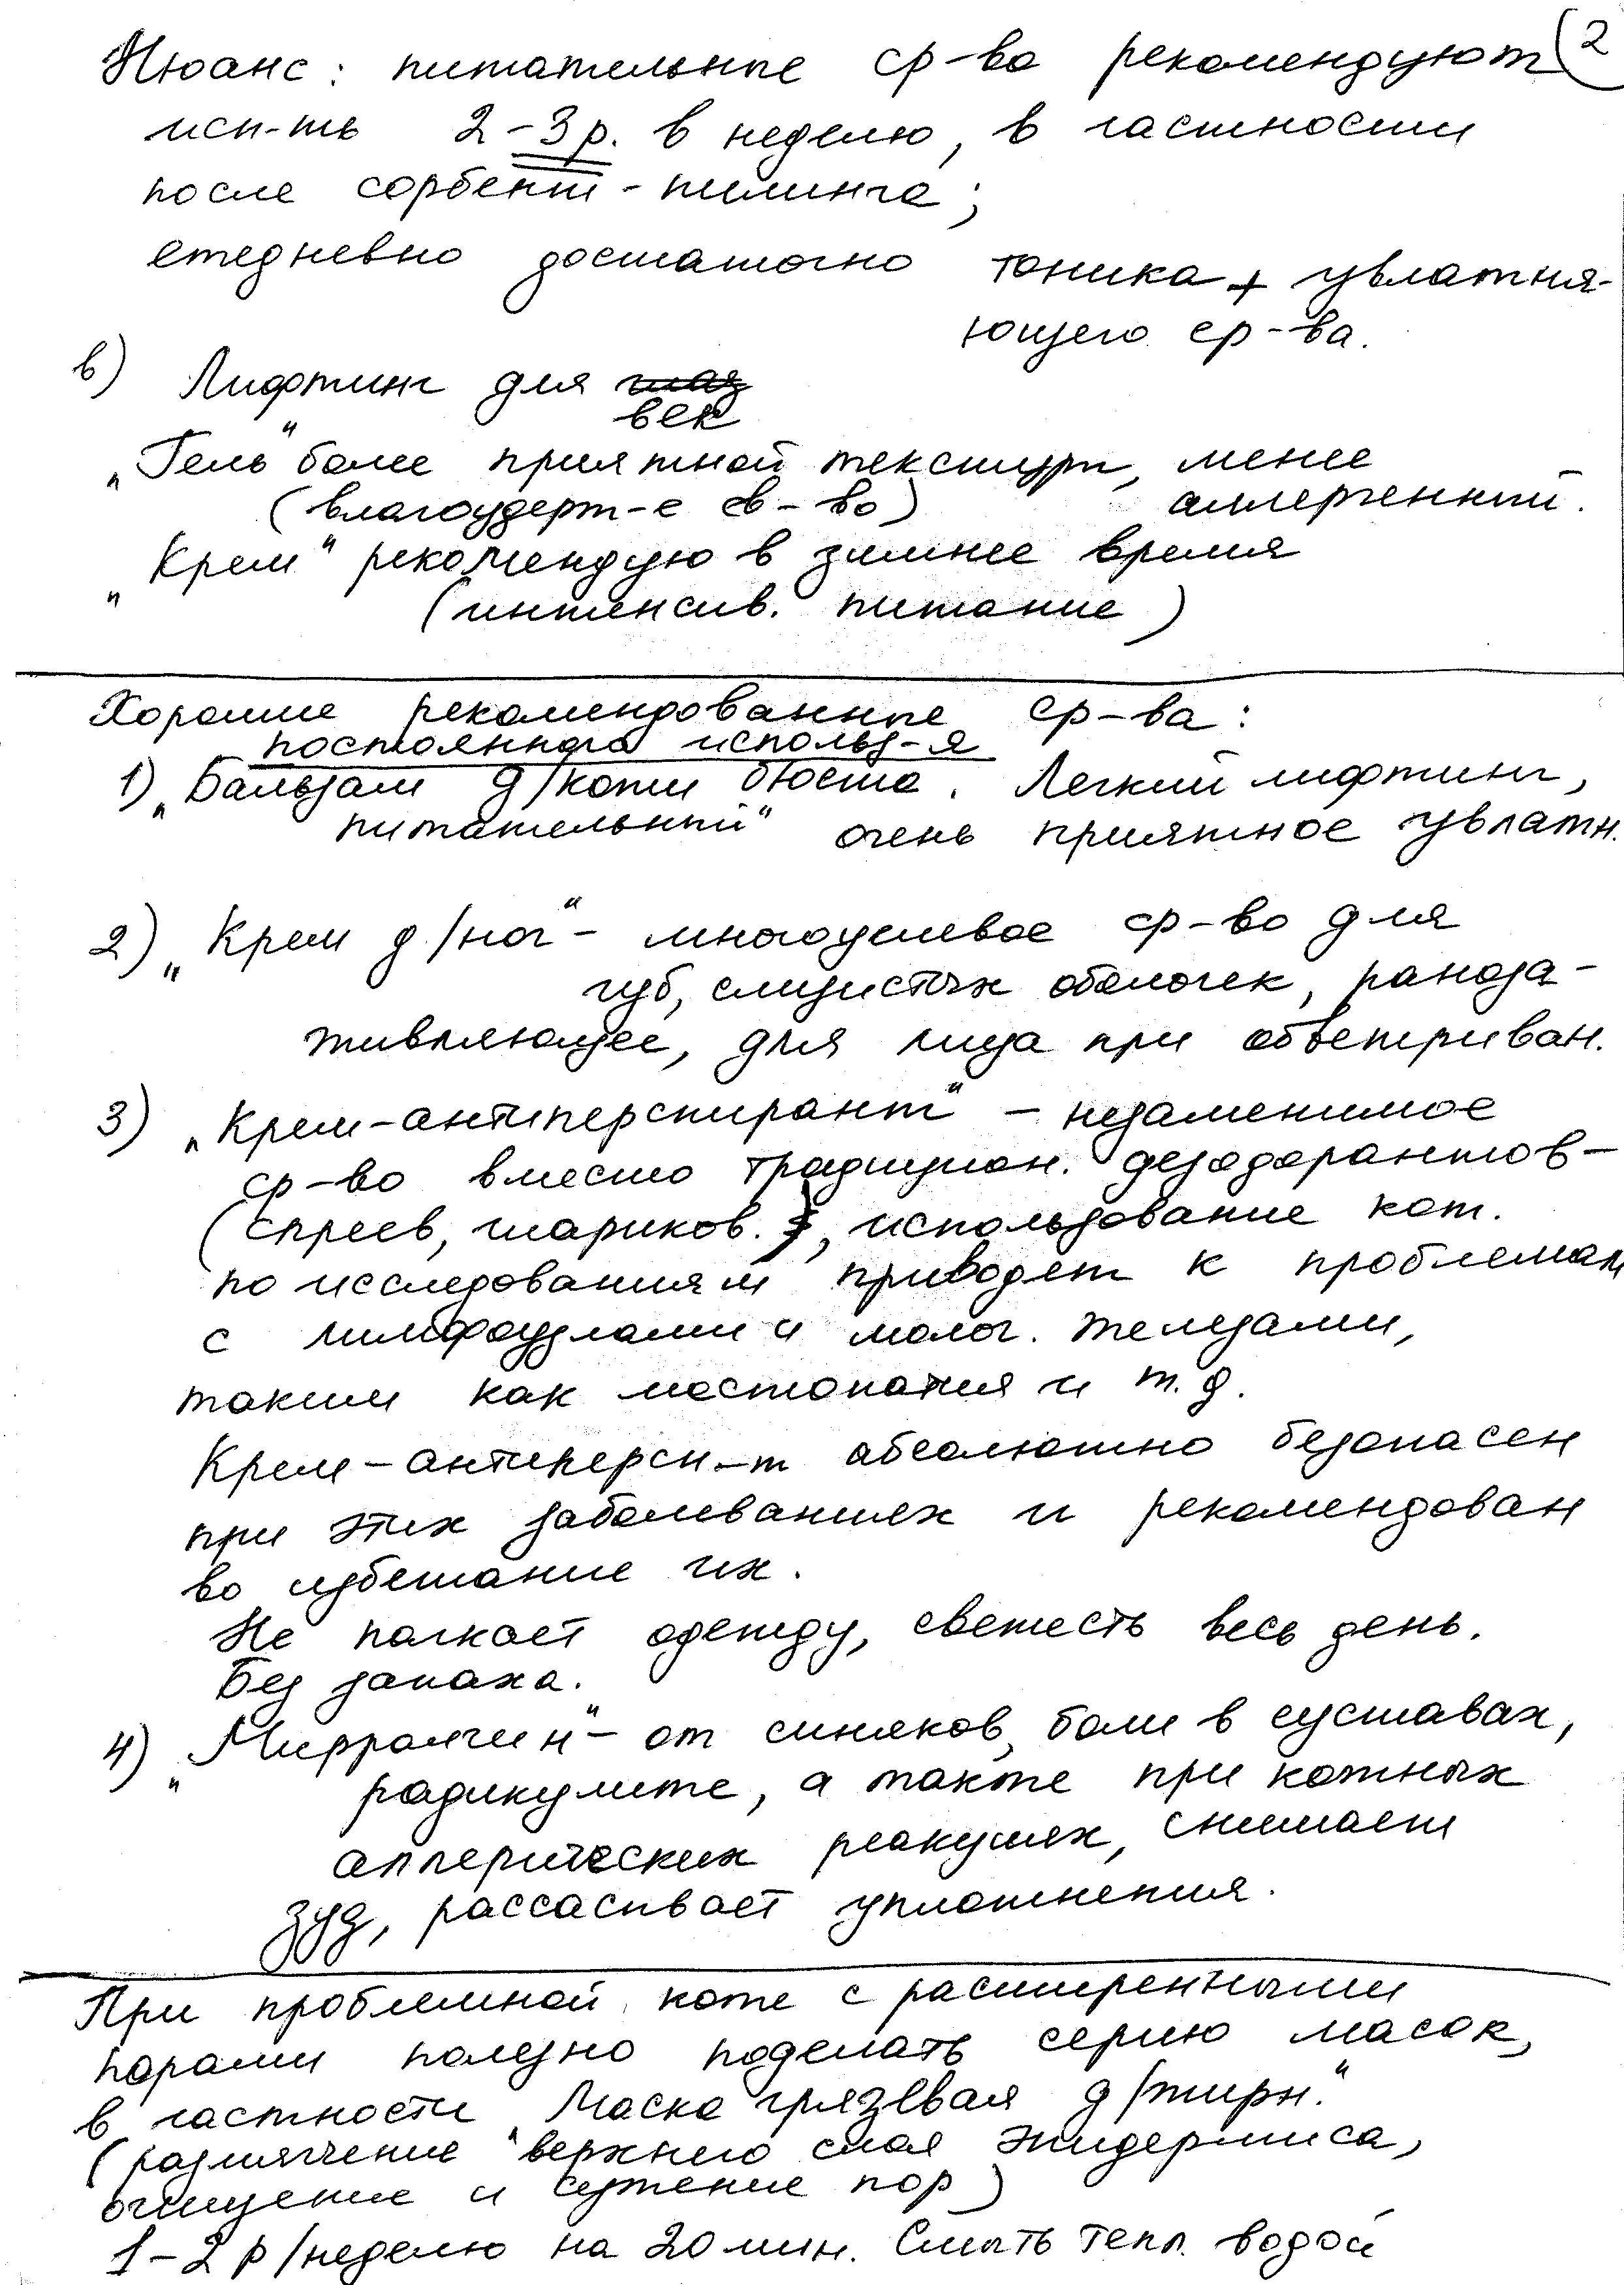 2
Нюанс: питательные ср-ва рекомендуют
исп-ть 2-3 р. в неделю, в частности
после сорбент-пилинга;
ежедневно достаточно тоника + увлажня-
ющего ср-ва.
в) Лифтинг для глаз
век
„Гель“ более приятной текстуры, менее
(влагоудерж-е св-во) аллергенный.
„Крем“ рекомендую в зимнее время
(интенсив. питание)
Хорошие рекомендованные ср-ва:
постоянного использ-я
1) „Бальзам д/кожи бюста. Легкий лифтинг,
питательный“ очень приятное увлажн.
2) „Крем д/ног“ - многоцелевое ср-во для
губ, слизистых оболочек, раноза-
живляющее, для лица при обветриван.
3) „Крем-антиперспирант“ - незаменимое
ср-во вместо традицион. дезодорантов-
(спреев, шариков.), использование кот.
по исследованиям приводет к проблемам
с лимфоузлами и молоч. железами,
таким как мастопатия и т.д.
Крем-антиперсп-т абсолютно безопасен
при этих заболеваниях и рекомендован
во избежание их.
Не пачкает одежду, свежесть весь день.
Без запаха.
4) „Мирралгин“ - от синяков, боли в суставах,
радикулите, а также при кожных
аллергических реакциях, снимает
зуд, рассасывает уплотнения.
При проблемной коже с расширенными
порами полезно поделать серию масок,
в частности „Маска грязевая д/жирн.“
(размягчение верхнего слоя эпидермиса,
очищение и сужение пор)
1-2 р/неделю на 20 мин. Смыть тепл. водой